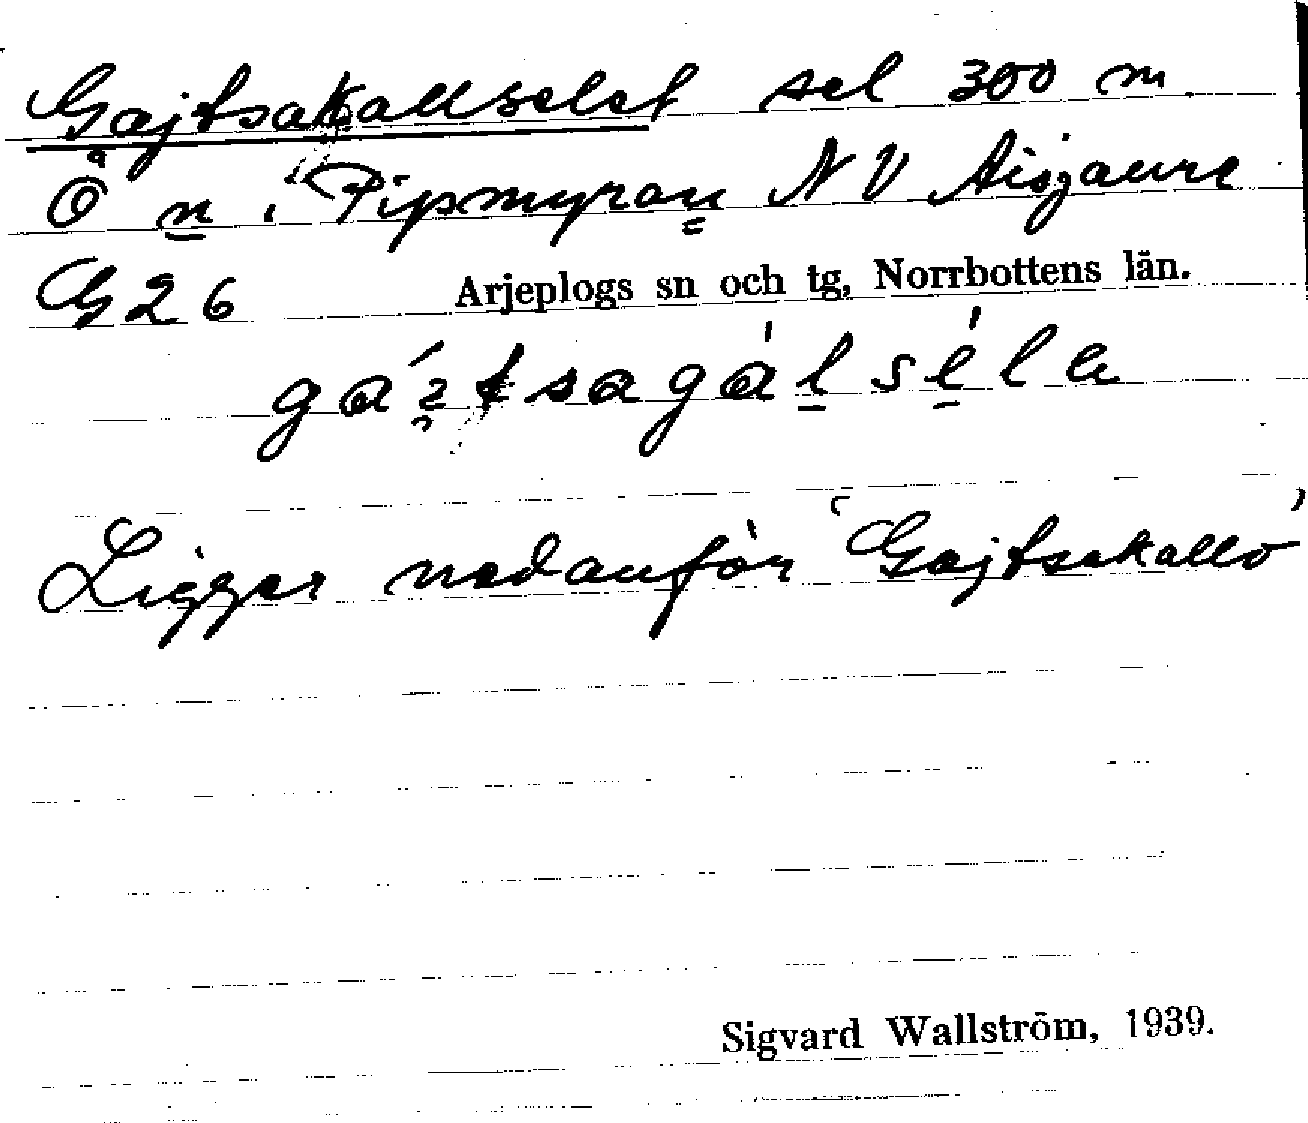 Gajtsakallselet sel 300 m
Ö n i Pipmyran NV Aisjaure
G 26 Arjeplogs sn och tg, Norrbottens län.
Ligger nedanför "Gajtsakallo"
Sigvard Wallström, 1939.